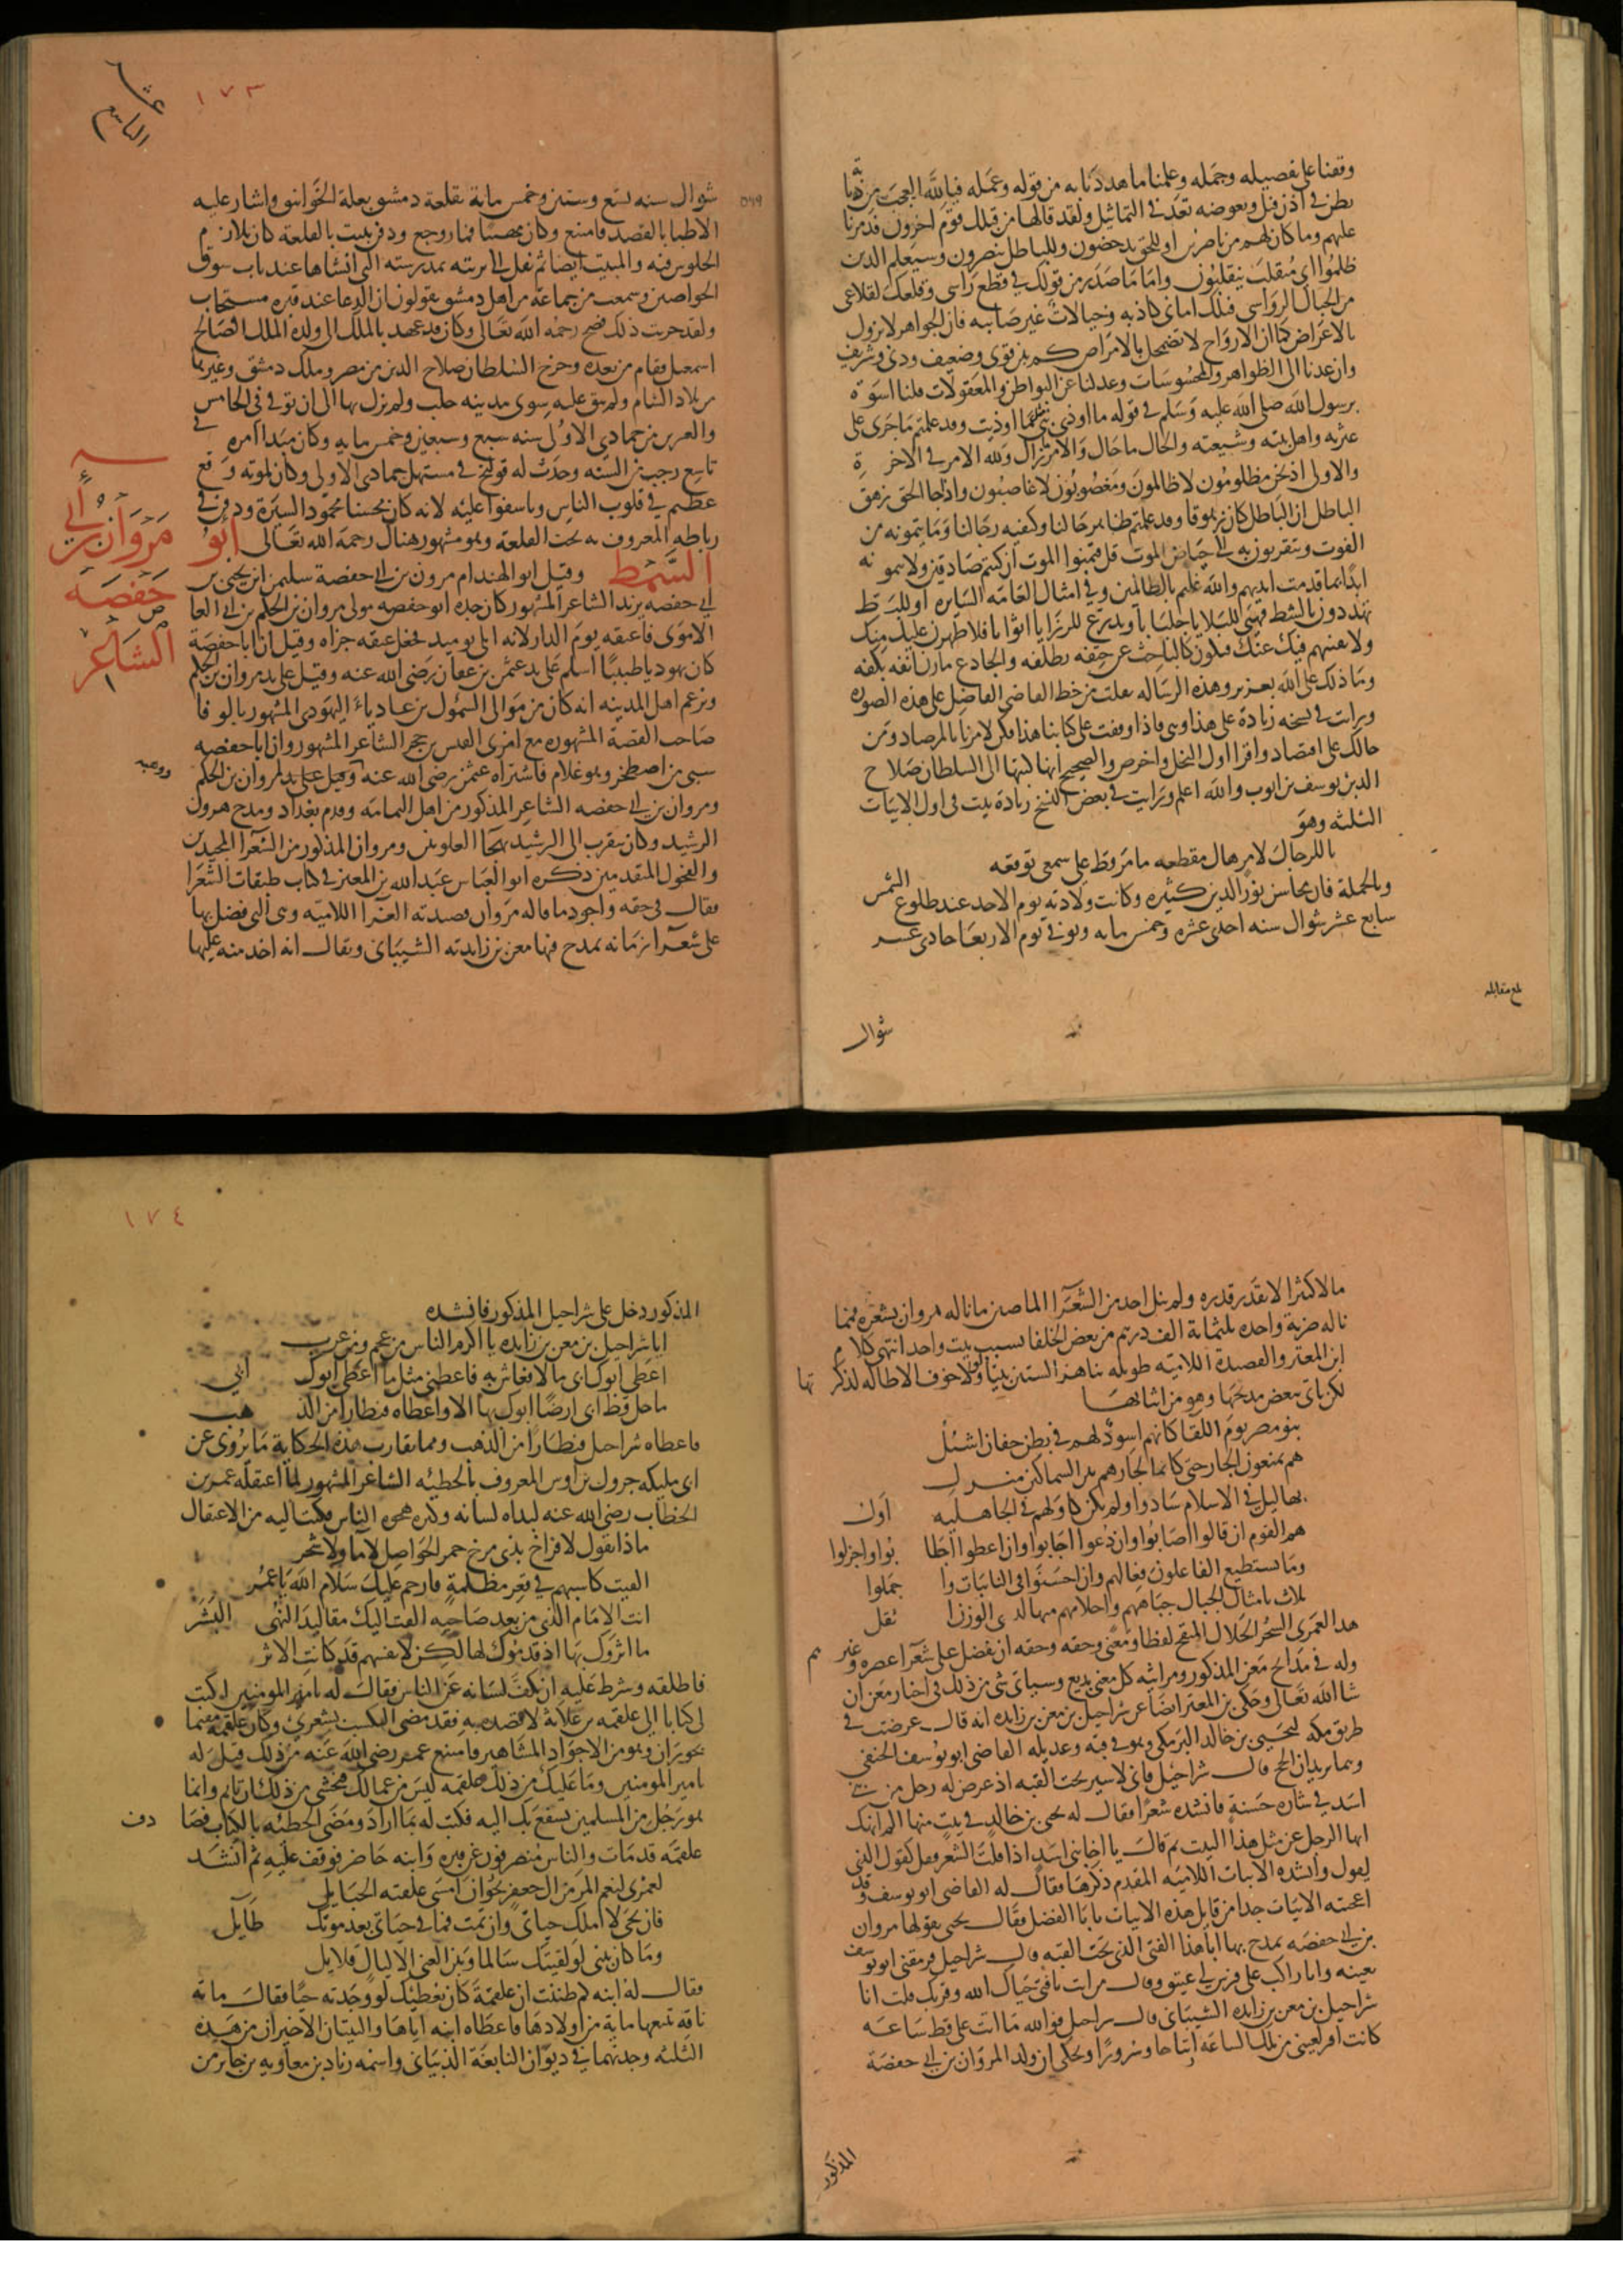 وقفنا على تفصيله وجمله وعلمنا ما هددنا به من قوله وعمله فيالله العجب من ذبابة
تطن في اذن فيل وبعوضة تعد في التماثيل ولقد قالها من قبلك قوم اخرون فدمرنا
عليهم وما كان لهم من ناصرين او للحق تدحضون وللباطل تنصرون وسيعلم الذين
ظلموا اي منقلب ينقلبون واما ما صدر من قولك في قطع راسي وقلعك لقلاعي
من الجبال الرواسي فتلك اماني كاذبه وخيالات غير صايبه فان الجواهر لا تزول
بالاعراض كما ان الارواح لا تضمحل بالامراض كم بين قوي وضعيف ودني وشريف
وان عدنا الى الظواهر والمحسوسات وعدلنا عن البواطن والمعقولات فلنا اسوة
برسول الله صلى الله عليه وسلم في قوله ما اوذي نبي ما اوذيت وقد علمتم ما جرى على
عترته واهل بيته وشيعته والحال ما حال والامر ما زال ولله الامر في الاخرة
والاولى اذ نحن مظلومون لا ظالمون ومغصوبون لا غاصبون واذا جا الحق زهق
الباطل ان الباطل كان زهوقا وقد علمتم ظاهر حالنا وكيفيه رجالنا وما يتمنونه من
الفوت ويتقربون به الى حياض الموت قل فتمنوا الموت ان كنتم صادقين ولا يتمنونه
ابدا بما قدمت ايديهم والله عليم بالظالمين وفي امثال العامه السايره او للبط
تهددون بالشط فهيي للبلايا جلبابا وتدرع للرزايا اثوابا فلاظهرن عليك منك
ولافنينهم فيك عنك فتكون كالباحث عن حتفه بظلفه والجادع مارن انفه بكفه
وما ذلك على الله بعزيز وهذه الرساله نقلت من خط القاضي الفاضل على هذه الصوره
ورايت في نسخه زيادة على هذا وهي فاذا وقفت على كتابنا هذا فكن لامرنا بالمرصاد ومن
حالك على اقتصاد واقرا اول النحل واخر ص والصحيح انها كتبها الى السلطان صلاح
الدين يوسف بن ايوب والله اعلم ورايت في بعض النسخ زيادة بيت في اول الابيات
الثلثه وهو
يا للرجال لامر هال مقطعه ما مر قط على سمعي توقعه
وبالجملة فان محاسن نور الدين كثيره وكانت ولادته يوم الاحد عند طلوع الشمس
سابع عشر شوال سنه احدى عشره وخمس مايه وتوفي يوم الاربعا حادي عشر
بلغ مقابله
شوال
١٧٣
عشر
التاسع
شوال سنه تسع وستين وخمس ماية بقلعة دمشق بعلة الخوانيق واشار عليه
٥٦٩
الاطبا بالفصد فامتنع وكان مهيبا فما روجع ودفن ببيت بالقلعة كان يلازم
الجلوس فيه والمبيت ايضا ثم نقل الى تربته بمدرسته التي انشاها عند باب سوق
الخواصين وسمعت من جماعة من اهل دمشق يقولون ان الدعا عند قبره مستجاب
ولقد جربت ذلك فصح رحمه الله تعالى وكان قد عهد بالملك الى ولده الملك الصالح
اسمعيل فقام من بعده وخرج السلطان صلاح الدين من مصر وملك دمشق وغيرها
من بلاد الشام ولم يبق عليه سوى مدينه حلب ولم يزل بها الى ان توفي في الخامس
والعشرين من جمادي الاولى سنه سبع وسبعين وخمس مايه وكان مبدا مرضه في
تاسع رجب من السنه وحدث له قولنج في مستهل جمادى الاولى وكان لموته وقع
عظيم في قلوب الناس وتاسفوا عليه لانه كان محسنا محمود السيرة ودفن في
رباطه المعروف به تحت القلعة وهو مشهور هناك رحمه الله تعالى أبو
مروان بن أبي
حفصه
الشاعر
السمط وقيل ابو الهندام مرون بن ابي حفصة سليمن ابن يحيى بن
ابي حفصه يزيد الشاعر المشهور كان جده ابو حفصه مولى مروان بن الحكم بن ابي العاص
الاموى فاعتقه يوم الدار لانه ابلى يوميذ فجعل عتقه جزاه وقيل ان ابا حفصة
كان يهوديا طبيبا اسلم على يد عثمن بن عفان رضي الله عنه وقيل على يد مروان بن الحكم
وزعم اهل المدينه انه كان من موالى السمول بن عاديا اليهودى المشهور بالوفا
صاحب القصة المشهوره مع امرى القيس بن حجر الشاعر المشهور وان ابا حفصه
سبي من اصطخر وهو غلام فاشتراه عثمن رضي الله عنه ووهبه لمروان بن الحكم
ووهبه
ومروان بن ابي حفصه الشاعر المذكور من اهل اليمامه وقدم بغداد ومدح هرون
الرشيد وكان يتقرب الى الرشيد بهجا العلويين ومروان المذكور من الشعرا المجيدين
والفحول المتقدمين ذكره ابو العباس عبد الله بن المعتز في كتاب طبقات الشعرا
فقال في حقه واجود ما قاله مروان قصيدته الغرا اللاميه وهي التي فضل بها
على شعرا زمانه يمدح فيها معن بن زايدته الشيباني ويقال انه اخذ منه عليها
مالا كثيرا لا يقدر قدره ولم ينل احد من الشعرا الماضين ما ناله مروان بشعره فمما
ناله ضربة واحده ثلثماية الف درهم من بعض الخلفا بسبب بيت واحد انتهى كلام
ابن المعتز والقصيدة اللاميه طويله تناهز الستين بيتا ولولا خوف الاطاله لذكرتها
لكن ناتي ببعض مديحها وهو من اثنايها
بنو مطر يوم اللقا كانهم اسود لهم في بطن خفان اشبل
هم يمنعون الجار حتى كانما لجارهم بين السماكين منزل
بهاليل في الاسلام سادوا ولم يكن كاولهم في الجاهليه اول
هم القوم ان قالوا اصابوا وان دعوا اجابوا وان اعطوا اطابوا واجزلوا
وما يستطيع الفاعلون فعالهم وان احسنوا في النايبات واجملوا
ثلاث بامثال الجبال حباهم واحلامهم منها لدى الوزن اثقل
هذا لعمرى السحر الحلال المنقح لفظا ومعنى وحقه وحقه ان يفضل على شعرا عصره وغيرهم
وله في مدايح معن المذكور ومراثيه كل معنى بديع وسياتي شي من ذلك في اخبار معن ان
شا الله تعالى وحكى بن المعتز ايضا عن شراحيل بن معن بن زايده انه قال عرضت في
طريق مكه ليحيى بن خالد البرمكي وهو في قبه وعديله القاضي ابو يوسف الحنفي
وهما يريدان الحج قال شراحيل فاني لاسير تحت القبه اذ عرض له رجل من بني
اسد في شاره حسنة فانشده شعرا فقال له يحيى بن خالد في بيت منها الم انهك
ايها الرجل عن مثل هذا البيت ثم قال يا اخا بني اسد اذا قلت الشعر فقل كقول الذي
يقول وانشده الابيات اللاميه المقدم ذكرها فقال له القاضي ابو يوسف وقد
اعجبته الابيات جدا من قايل هذه الابيات يا ابا الفضل فقال يحيى يقولها مروان
بن ابي حفصه يمدح بها ابا هذا الفتى الذي تحت القبه قال شراحيل فرمقني ابو يوسف
بعينه وانا راكب على فرس لي عتيق وقال من انت يا فتى حياك الله وقربك قلت انا
شراحيل بن معن بن زايده الشيباني قال شراحيل فوالله ما اتت علي قط ساعه
كانت اقر لعيني من تلك الساعه ارتياحا وسرورا ويحكى ان ولد المروان بن ابي حفصة
المذكور
١٧٤
المذكور دخل على شراحيل المذكور فانشده
ايا شراحيل بن معن بن زايده يا اكرم الناس من عجم ومن عرب
اعطى ابوك ابي مالا فعاش به فاعطني مثل ما اعطى ابوك ابي
ما حل قط ابي ارضا ابوك بها الا واعطاه قنطارا من الذهب
فاعطاه شراحيل قنطارا من الذهب ومما يقارب هذه الحكاية ما يروى عن
ابي مليكه جرول بن اوس المعروف بالحطيئه الشاعر المشهور لما اعتقله عمر بن
الخطاب رضي الله عنه لبذاه لسانه وكثره هجوه الناس فكتب اليه من الاعتقال
ماذا تقول لافراخ بذي مرخ حمر الحواصل لا ما ولا شجر
القيت كاسبهم في قعر مظلمة فارحم عليك سلام الله يا عمر
انت الامام الذي من بعد صاحبه القت اليك مقاليد النهى البشر
ما اثروك بها اذ قدموك لها لكن لانفسهم قد كانت الاثر
فاطلقه وشرط عليه ان يكف لسانه عن الناس فقال له يا امير المومنين اكتب
لي كتابا الى علقمه بن علاثة لاقصده به فقد منعتني التكسب بشعري وكان علقمة مقيما
بحوران وهو من الاجواد المشاهير فامتنع عمر رضي الله عنه من ذلك فقيل له
يا امير المومنين وما عليك من ذلك علقمه ليس من عمالك فتخشى من ذلك ان تاثم وانما
هو رجل من المسلمين يشفع بك اليه فكتب له بما اراد ومضى الحطيئه بالكتاب فصادف
علقمة قد مات والناس منصرفون عن قبره وابنه حاضر فوقف عليه ثم انشد
لعمري لنعم المرء من ال جعفر بحوران امسى علقته الحبايل
فان تحي لا املل حياتي وان تمت فما في حياتي بعد موتك طايل
وما كان بيني لو لقيتك سالما وبين الغنى الا ليال قلايل
فقال له ابنه كم ظننت ان علقمة كان يعطيك لو وجدته حيا فقال ماية
ناقه تتبعها ماية من اولادها فاعطاه ابنه اياها والبيتان الاخيران من هذه
الثلثه وجدتهما في ديوان النابغة الذبياني واسمه زياد بن معاويه بن جابر من